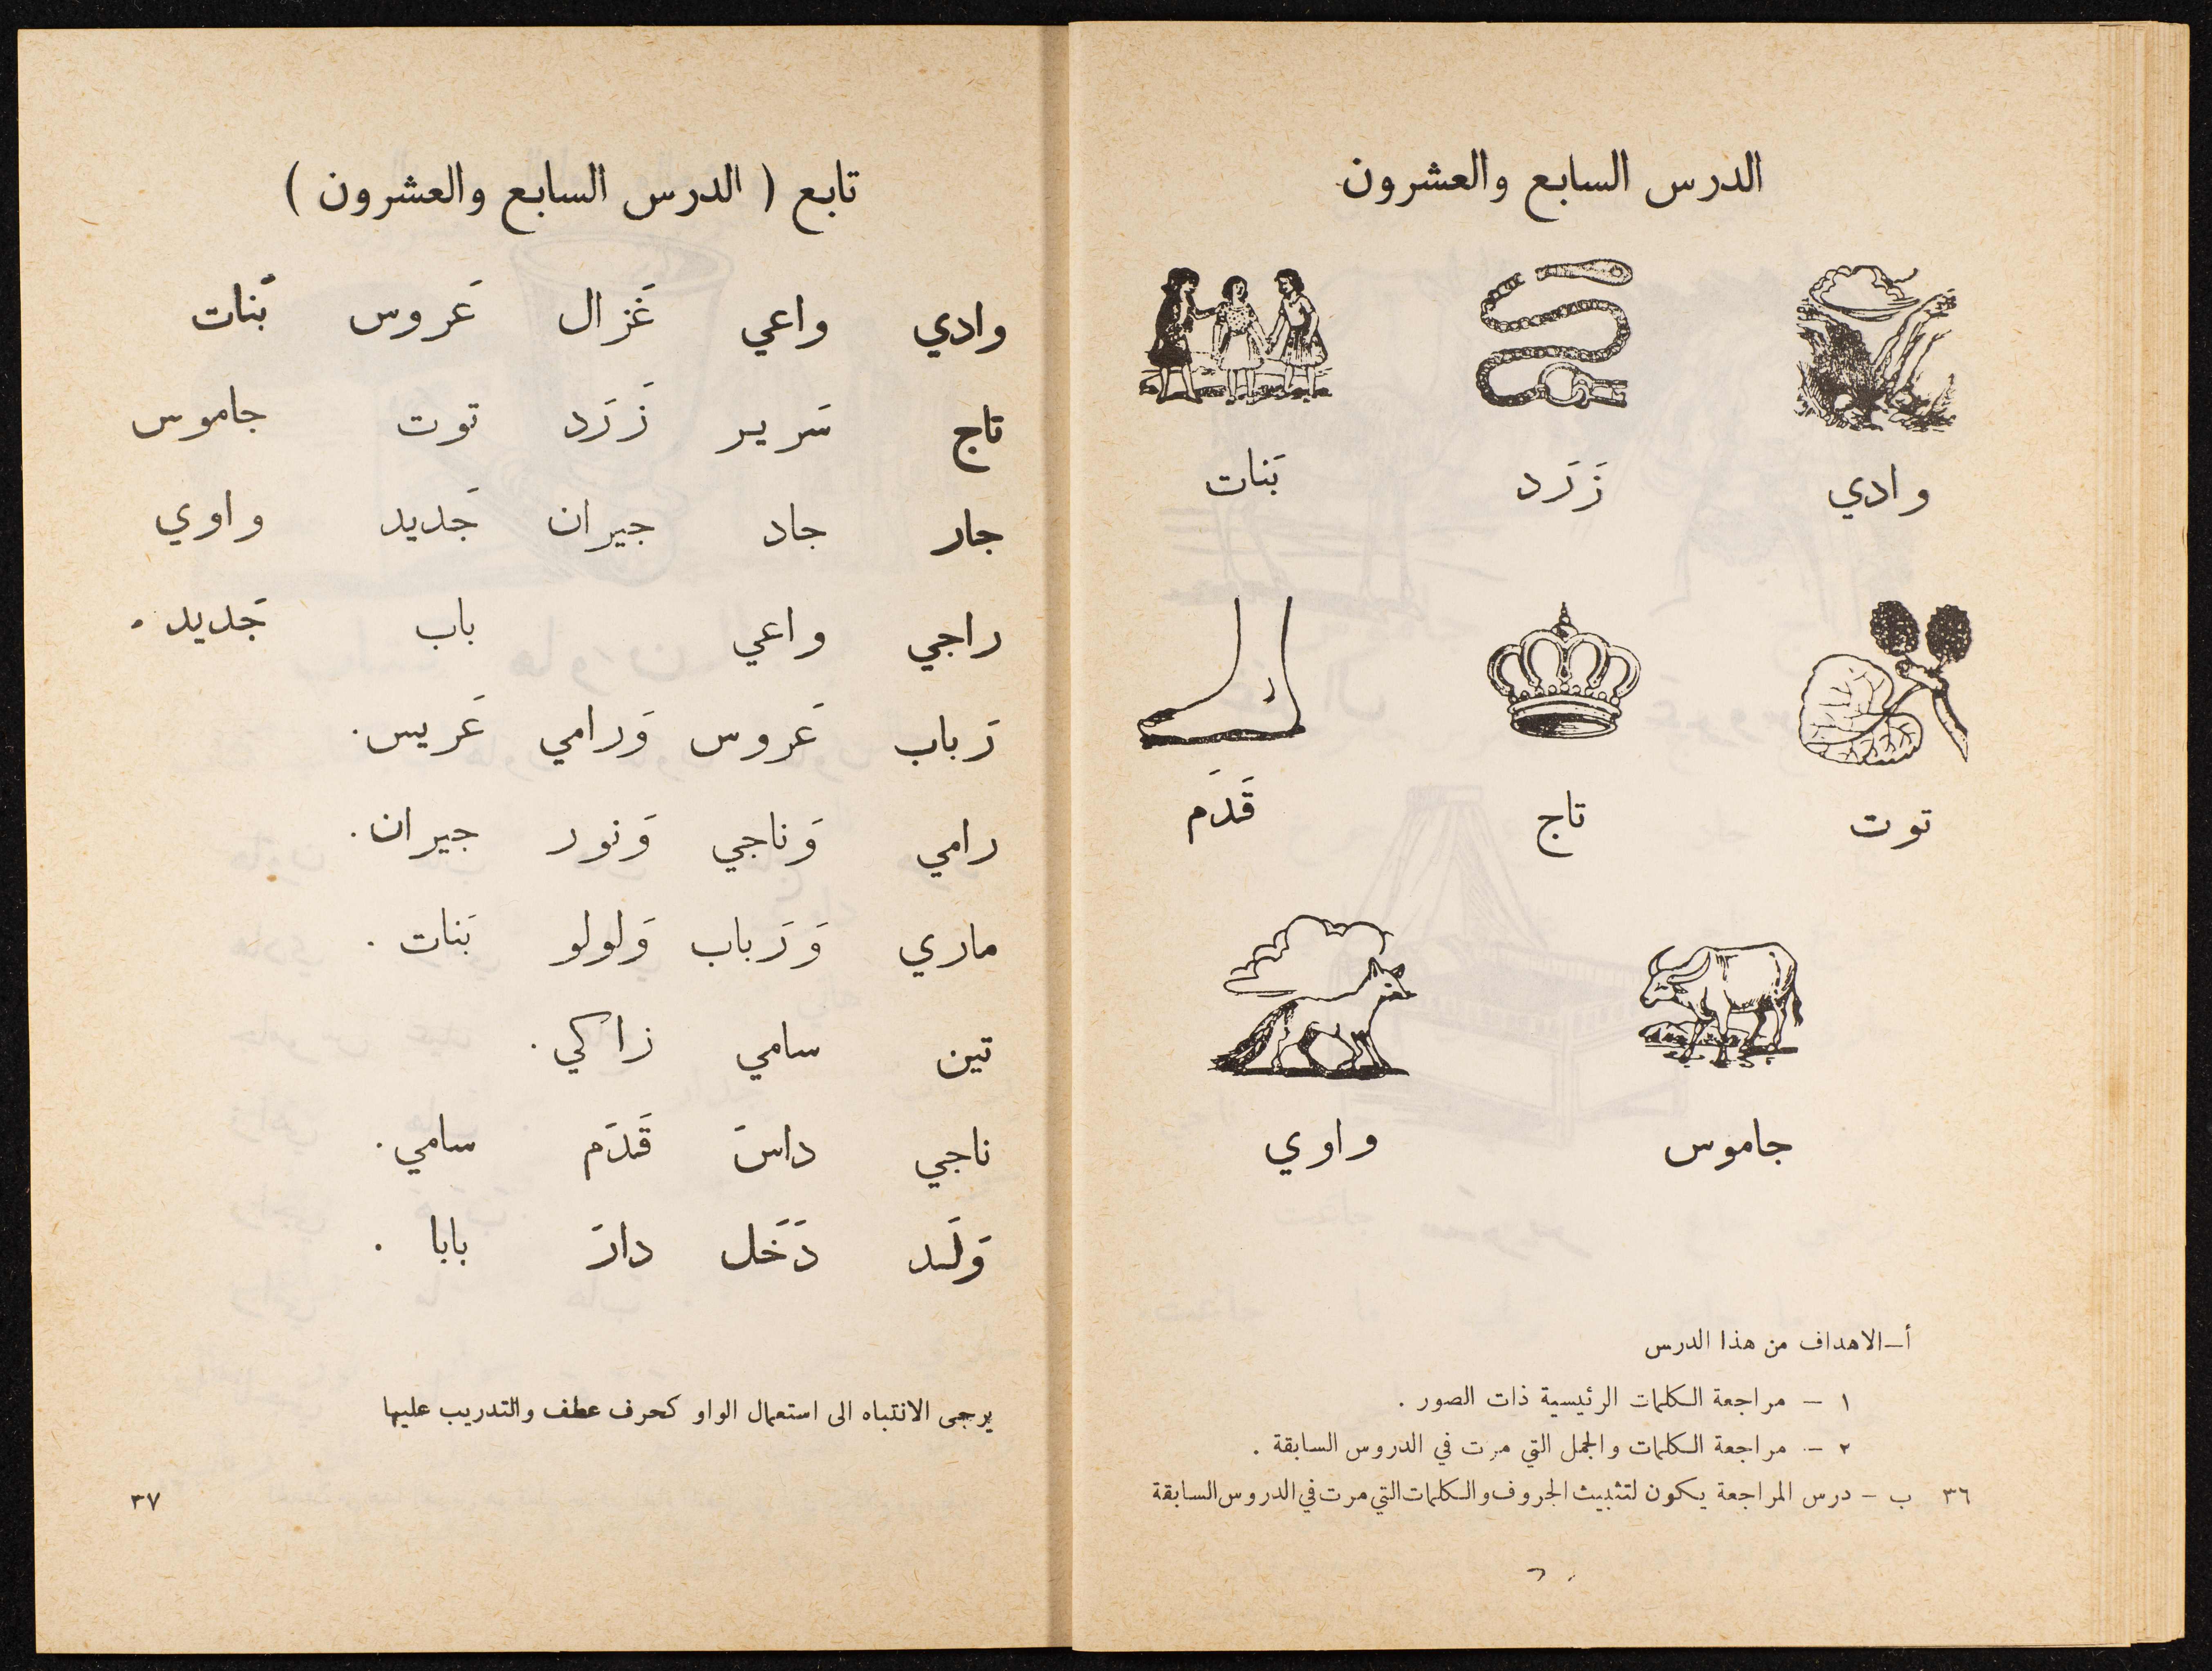 الدرس السابع والعشرون
وادي زَرَد بَنات
توت تاج قَدَم
جاموس واوي
أ‌ــ الاهداف من هذا الدرس
١ – مراجعة الكلمات الرئيسية ذات الصور .
٢ – مراجعة الكلمات والجمل التي مرت في الدروس السابقة .
ب – درس المراجعة يكون لتثبيث الحروف والكلمات التي مرت في الدروس السابقة
٣٦
تابع ( الدرس السابع والعشرون )
وادي واعي غَزال عَروس بَنات
تاج سَرير زَرَد توت جاموس
جار جاد جيران جَديد واوي
راجي واعي باب جَديد .
رَباب عَروس وَرامي عَريس .
رامي وَناجي وَنور جيران .
ماري وَرَباب وَلولو بَنات .
تين سامي زاكي .
ناجي داسَ قَدَم سامي .
وَلَد دَخَل دارَ بابا .
يرجى الانتباه الى استعمال الواو كحرف عطف والتدريب عليها
٣٧